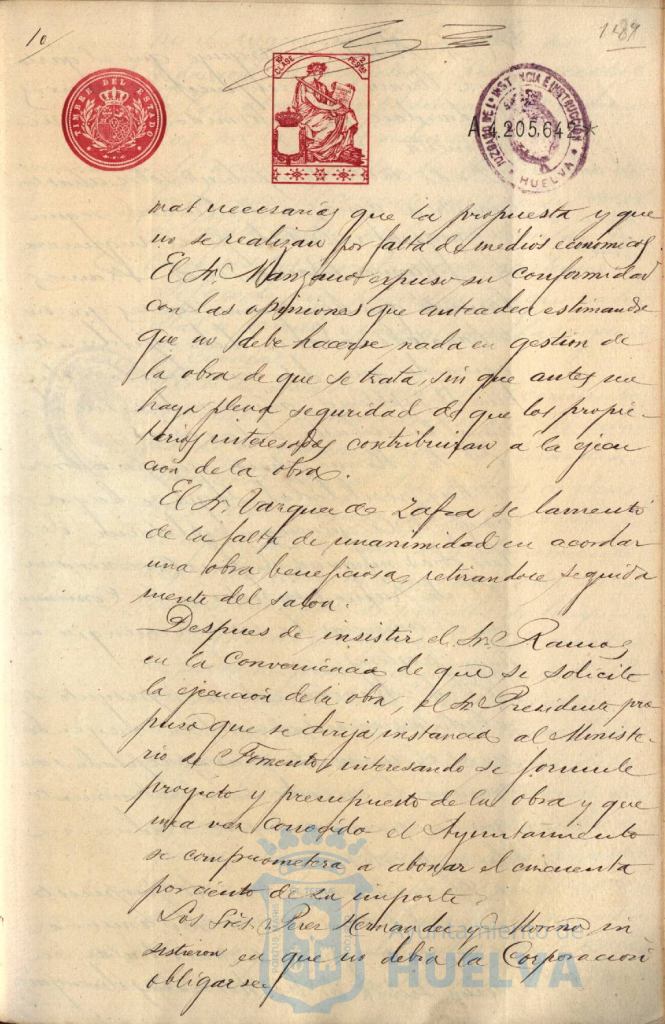 10
TIMBRE DEL ESTADO
CLASE 10ª
2 PESETAS
A4.205.642*
JUZGADO DE 1ª INSTANCIA E INSTRUCCIÓN
* HUELVA *
mas necesarias que la propuesta y que
no se realizan por falta de medios economicos
El Sr. Manzano expuso su conformidad
con las opiniones que antecaden estimando
que no debe hacerse nada en gestion de
la obra de que se trata, sin que antes no
haya plena seguridad de que los propie-
tarios interesados contribuiran a la ejecu
ción de la obra.
El Sr. Vazquez de Zafra se lamentó
de la falta de unanimidad en acordar
una obra beneficiosa, retirandose seguida
mente del salon.
Despues de insistir el Sr. Ramos
en la conveniencia de que se solicite
la ejecución de la obra, el Sr. Presidente pro
puso que se dirija instancia al Ministe-
rio de Fomento interesando se formule
proyecto y presupuesto de la obra y que
una vez conocido el Ayuntamiento
se comprometera a abonar el cincuenta
por ciento de su importe.
Los Srés. Perez Hernandez y Moreno in
sistieron en que no debia la Corporación
obligarse
Ayuntamiento de
HUELVA